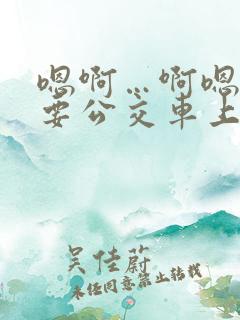 嗯啊…啊嗯
要公交车上
吴佳蔚
未经同意禁止转载